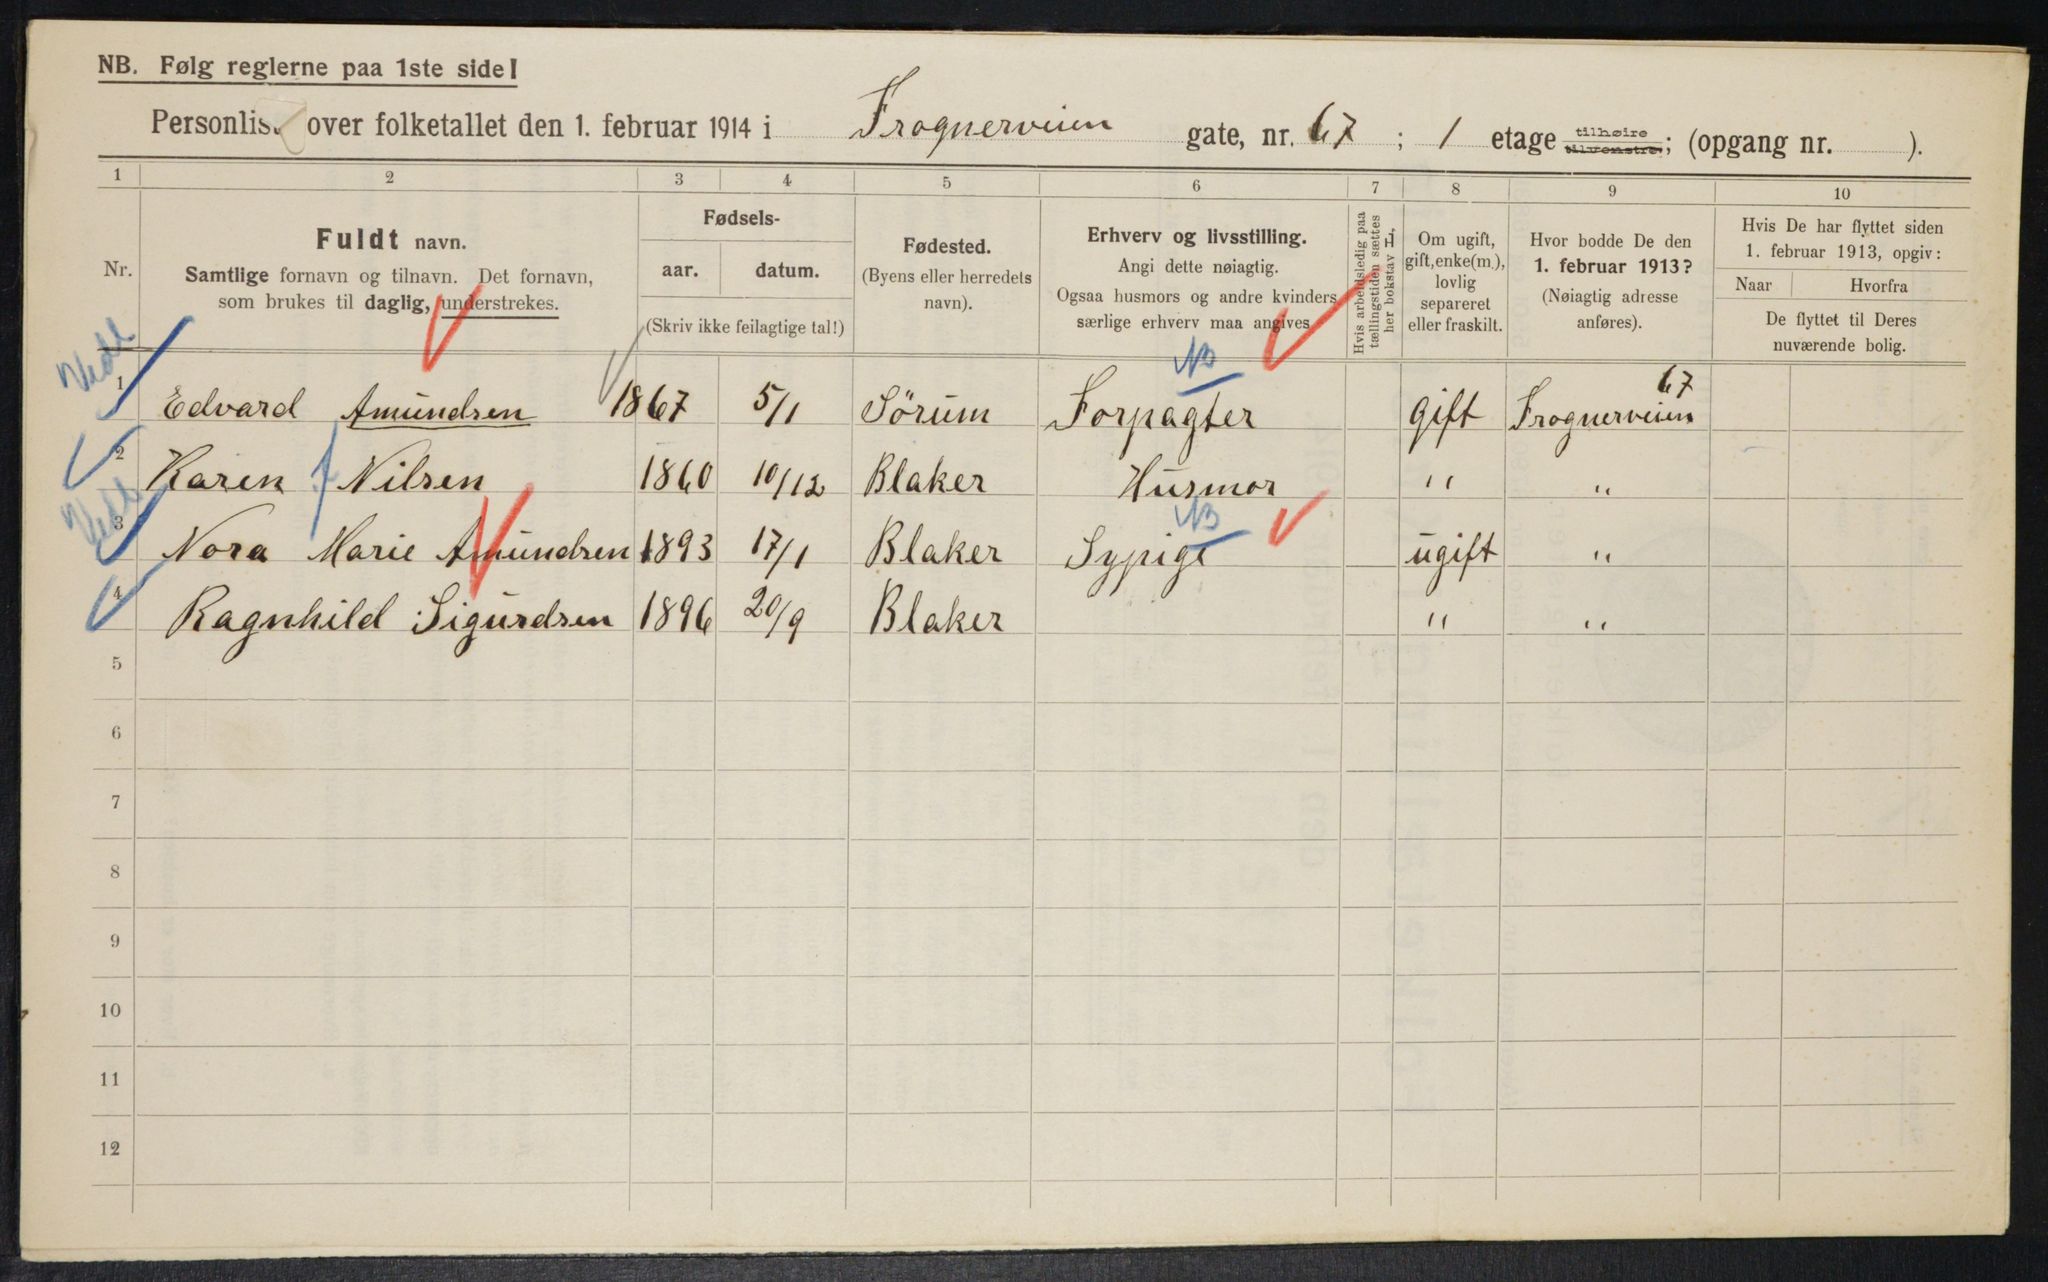 NB. Følg reglerne paa 1ste side!
Personliste over folketallet den 1. februar 1914 i Frognerveien gate, nr. 67 ; 1 etage tilhøire tilvenstre; (opgang nr. ).
1 2 3 4 5 6 7 8 9 10
Nr.
Fuldt navn.
Samtlige fornavn og tilnavn. Det fornavn,
som brukes til daglig, understrekes.
Fødsels-
aar. datum.
(Skriv ikke feilagtige tal!)
Fødested.
(Byens eller herredets
navn).
Erhverv og livsstilling.
Angi dette nøiagtig.
Ogsaa husmors og andre kvinders
særlige erhverv maa angives
Hvis arbeidsledig paa
tællingstiden sættes
her bokstav H,
Om ugift,
gift, enke(m.),
lovlig
separeret
eller fraskilt.
Hvor bodde De den
1. februar 1913?
(Nøiagtig adresse
anføres).
Hvis De har flyttet siden
1. februar 1913, opgiv:
Naar Hvorfra
De flyttet til Deres
nuværende bolig.
NB 67
1 Edvard Amundsen 1867 5/1 Sörum Forpagter gift Frognerveien
2 Karen Nilsen 1860 10/12 Blaker Husmor " "
NB
3 Nora Marie Amundsen 1893 17/1 Blaker Sypige ugift "
4 Ragnhild Sigurdsen 1896 20/9 Blaker " "
5
6
7
8
9
10
11
12